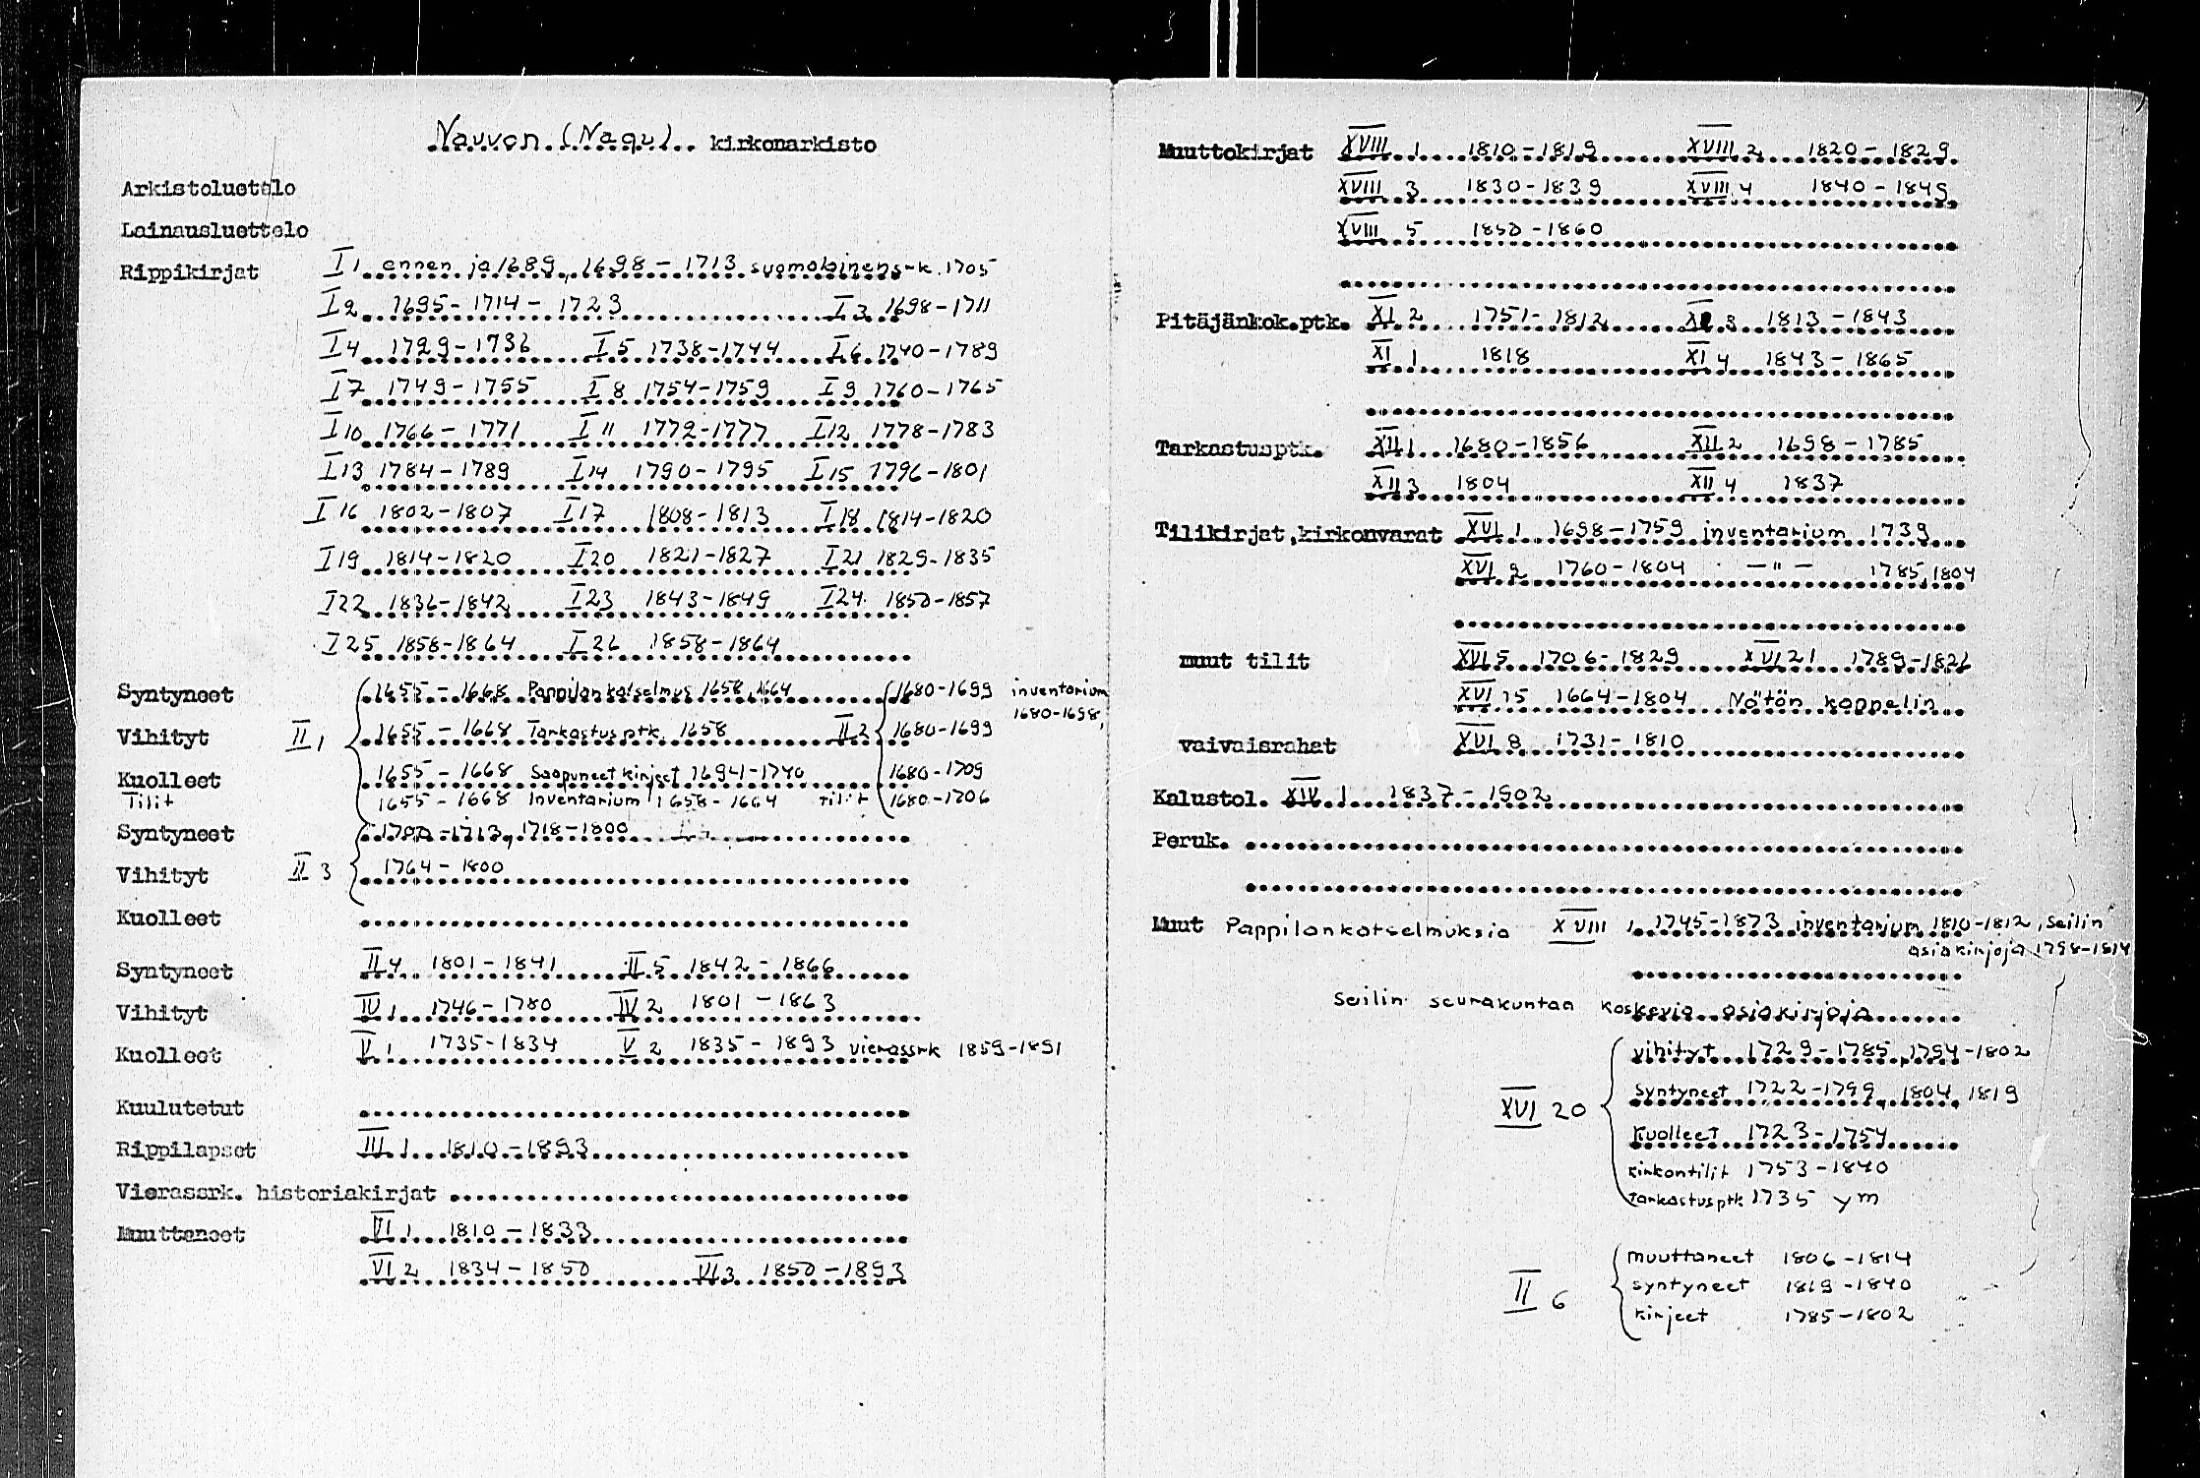 Nauvon (Nagu) kirkonarkisto
Arkistoluettelo
Lainausluettelo
Rippikirjat I 1 ennen ja 1689, 1698-1713 suomalainen s-k. 1705
I 2 1695-1714-1723 I 3 1698-1711
I 4 1729-1736 I 5 1738-1744 I 6 1740-1789
I 7 1749-1755 I 8 1754-1759 I 9 1760-1765
I 10 1766-1771 I 11 1772-1777 I 12 1778-1783
I 13 1784-1789 I 14 1790-1795 I 15 1796-1801
I 16 1802-1807 I 17 1808-1813 I 18 1814-1820
I 19 1814-1820 I 20 1821-1827 I 21 1829-1835
I 22 1836-1842 I 23 1843-1849 I 24 1850-1857
I 25 1858-1864 I 26 1858-1864
Syntyneet 1655-1668 Pappilankatselmus 1658, 1664 1680-1699 inventarium
1680-1698,
Vihityt II 1 1655-1668 Tarkastusptk. 1658 II 2 1680-1699
Kuolleet 1655-1668 Saapuneet kirjeet 1694-1740 1680-1709
Tilit 1655-1668 Inventarium 1658-1664 tilit 1680-1706
Syntyneet -1713, 1718-1800
Vihityt II 3 1764-1800
Kuolleet
Syntyneet II 4 1801-1841 II 5 1842-1866
Vihityt IV 1 1746-1780 IV 2 1801-1863
Kuolleet V 1 1735-1834 V 2 1835-1893 vierassrk 1859-1891
Kuulutetut
Rippilapset III 1 1810-1893
Vierassrk. historiakirjat
Muuttaneet VI 1 1810-1833
VI 2 1834-1850 VI 3 1850-1893
Muuttokirjat XVIII 1 1810-1819 XVIII 2 1820-1829
XVIII 3 1830-1839 XVIII 4 1840-1849
XVIII 5 1850-1860
Pitäjänkok.ptk. XI 2 1751-1812 XI 3 1813-1843
XI 1 1818 XI 4 1843-1865
Tarkastusptk. XII 1 1680-1856 XII 2 1698-1785
XII 3 1804 XII 4 1837
Tilikirjat, kirkonvarat XVI 1 1698-1759 inventarium 1739
XVI 2 1760-1804 -"- 1785, 1804
muut tilit XVI 5 1706-1829 XVI 21 1789-1826
XVI 15 1664-1804 Nötön kappelin
vaivaisrahat XVI 8 1731-1810
Kalustol. XIV 1 1837-1902
Peruk.
Muut Pappilankatselmuksia XVIII 1 1745-1873 inventarium 1810-1812, Seilin
asiakirjoja 1798-1814
Seilin seurakuntaa koskevia asiakirjoja
vihityt 1729-1785, 1794-1802
syntyneet 1722-1799, 1804, 1819
XVI 20
kuolleet 1723-1754
kirkontilit 1753-1840
tarkastusptk 1735 ym
muuttaneet 1806-1814
II 6 syntyneet 1819-1840
kirjeet 1785-1802